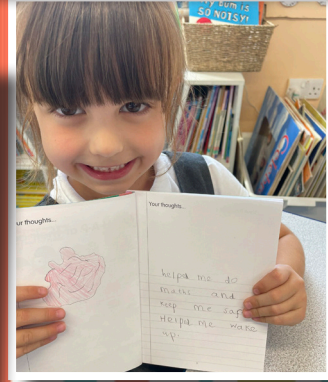 my bum is
SO NOISY!
ur thoughts...
Your thoughts...
helpd me do
maths and
keep me saf
Helpd me wake
up.